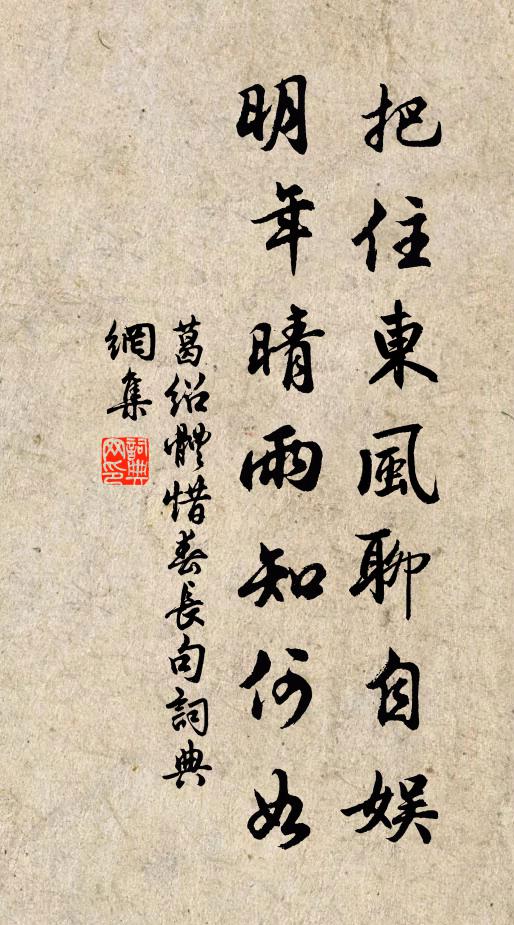 把住東風聊自娛
明年晴雨知何如
葛紹體惜春長句詞典
網集
詞典網印